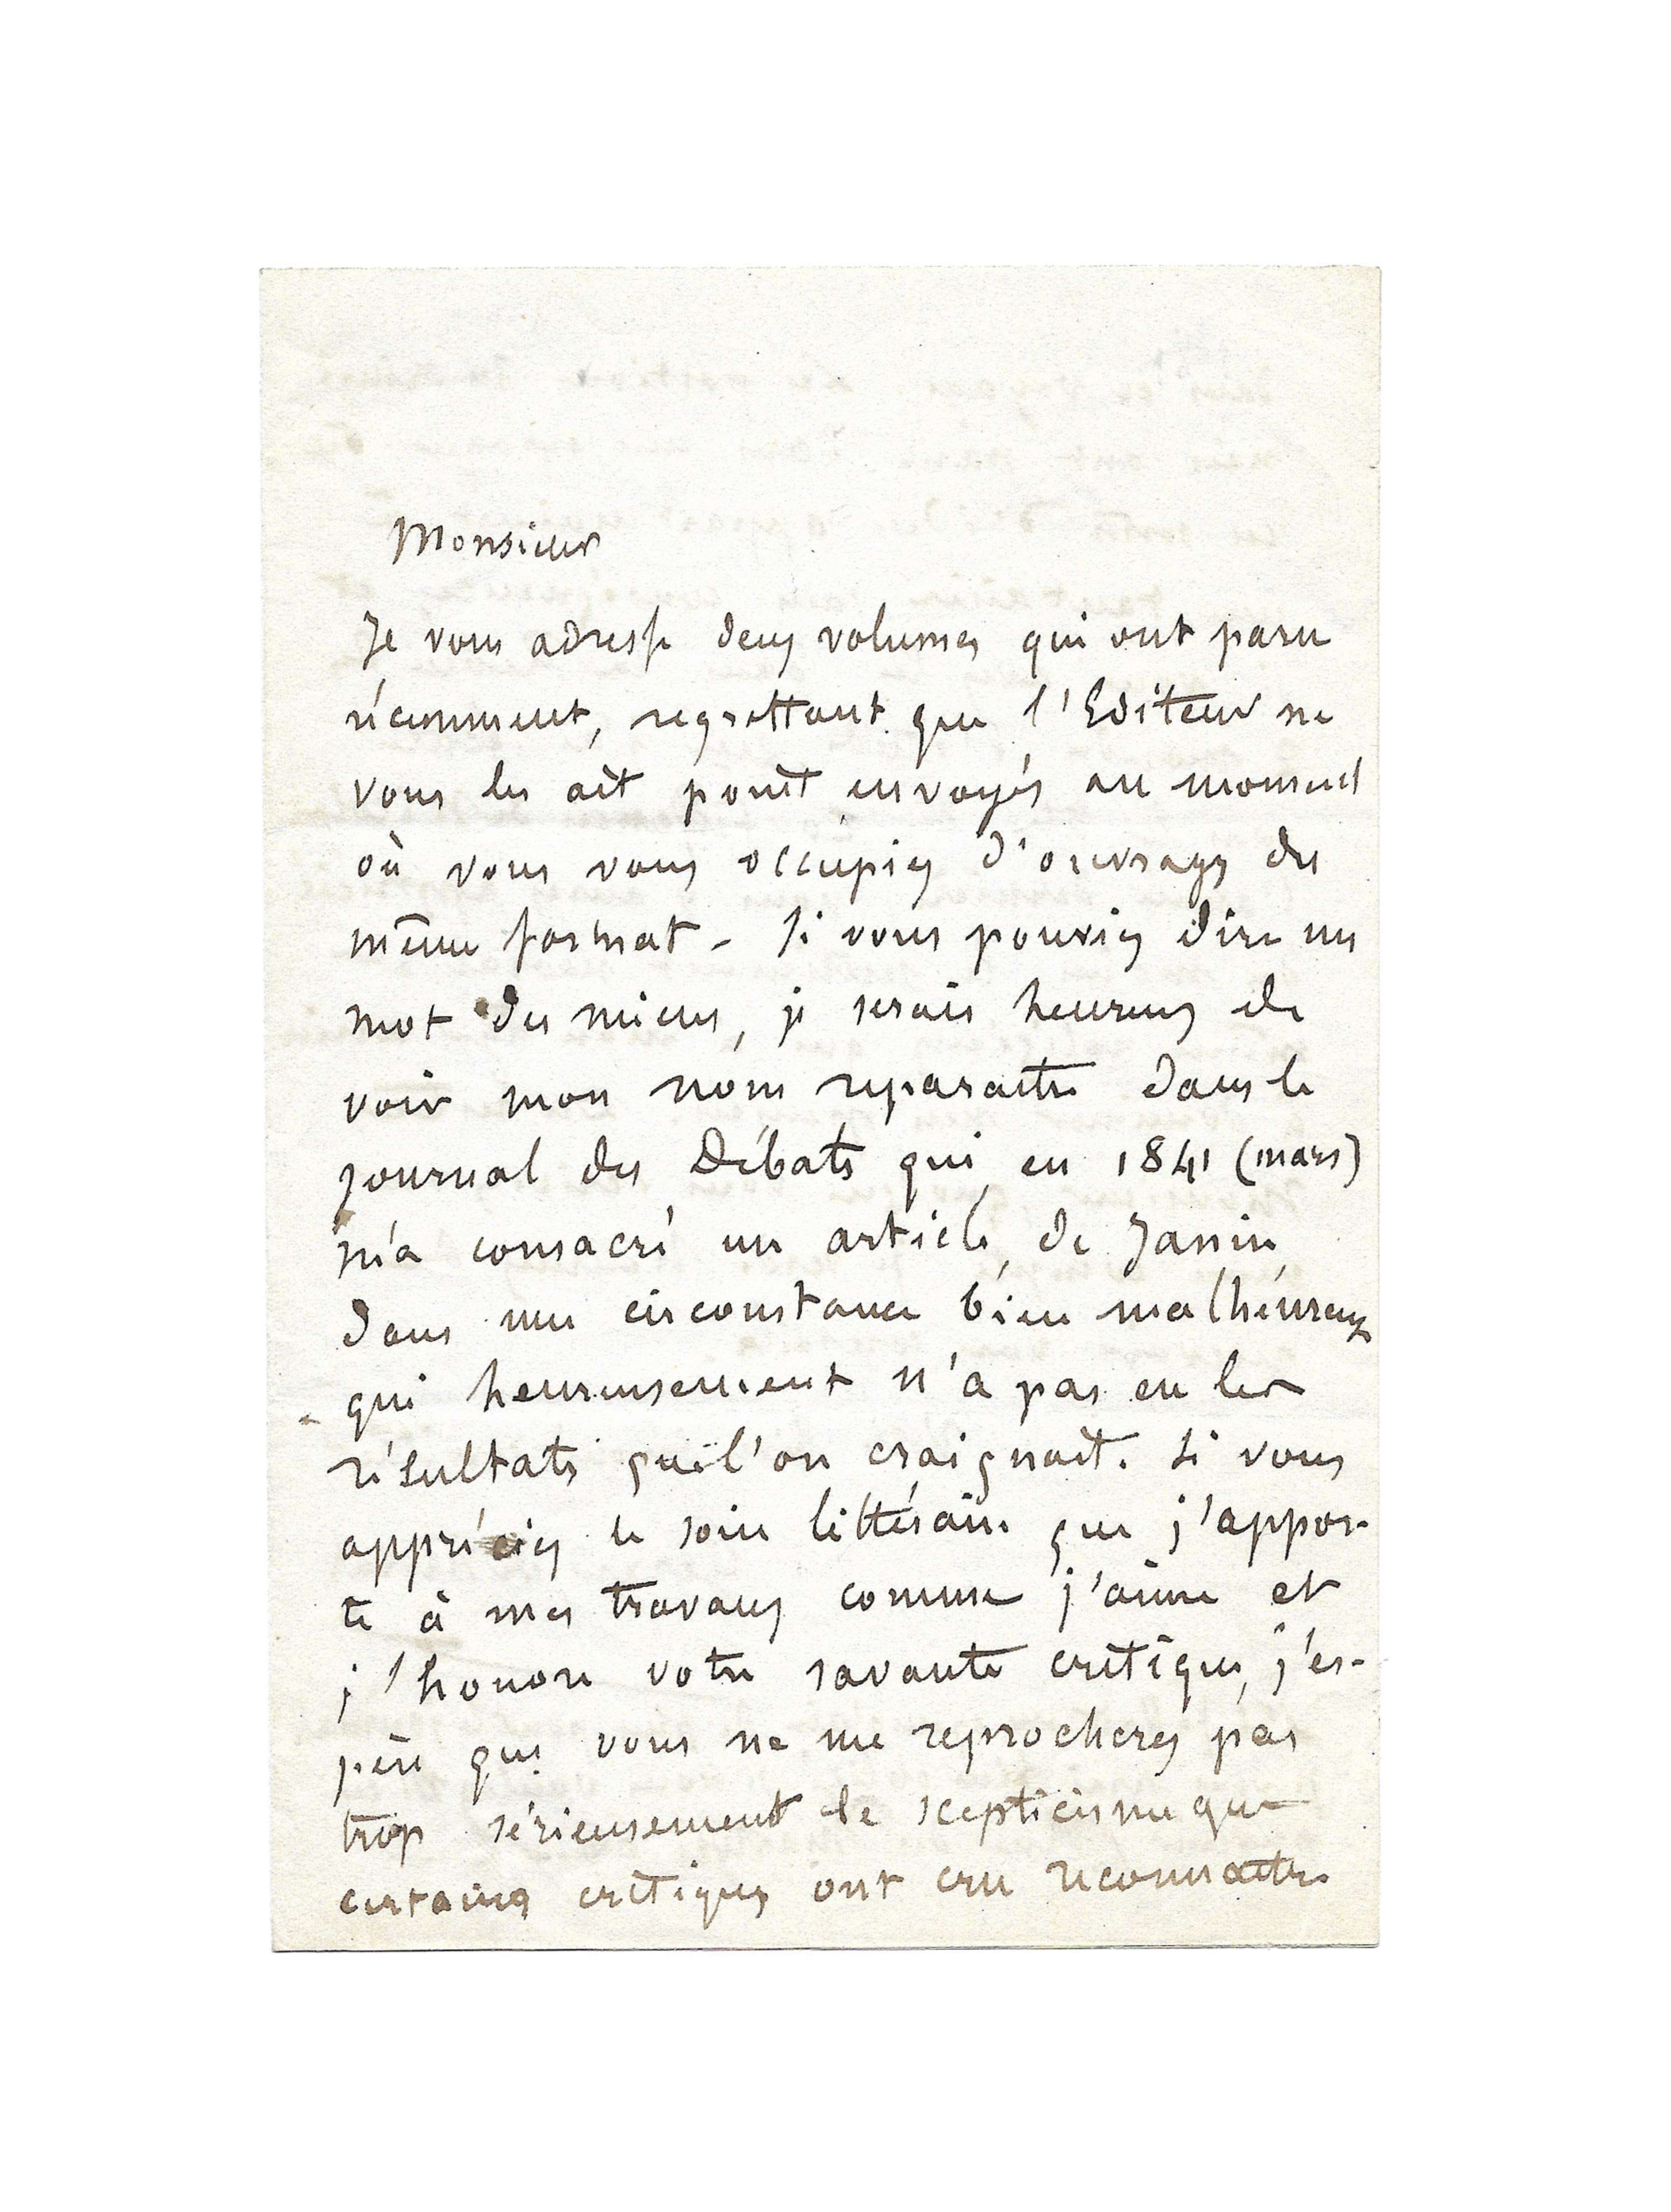 Monsieur
Je vous adresse deux volumes qui ont paru
récemment, regrettant que l'Editeur ne
vous les ait point envoyés au moment
où vous vous occupiez d'ouvrages du
même format - Si vous pouviez dire un
mot des miens, je serais heureux de
voir mon nom reparaître dans le
journal des Débats qui, en 1841 (mars)
m'a consacré un article, de Janin,
dans une circonstance bien malheureuse
qui heureusement n'a pas eu les
résultats que l'on craignait. Si vous
appréciez le soin littéraire que j'appor-
te à mes travaux comme j'aime et
j'honore votre savante critique, j'es-
père que vous ne me reprocherez pas
trop sérieusement le scepticisme que
certains critiques ont cru reconnaître